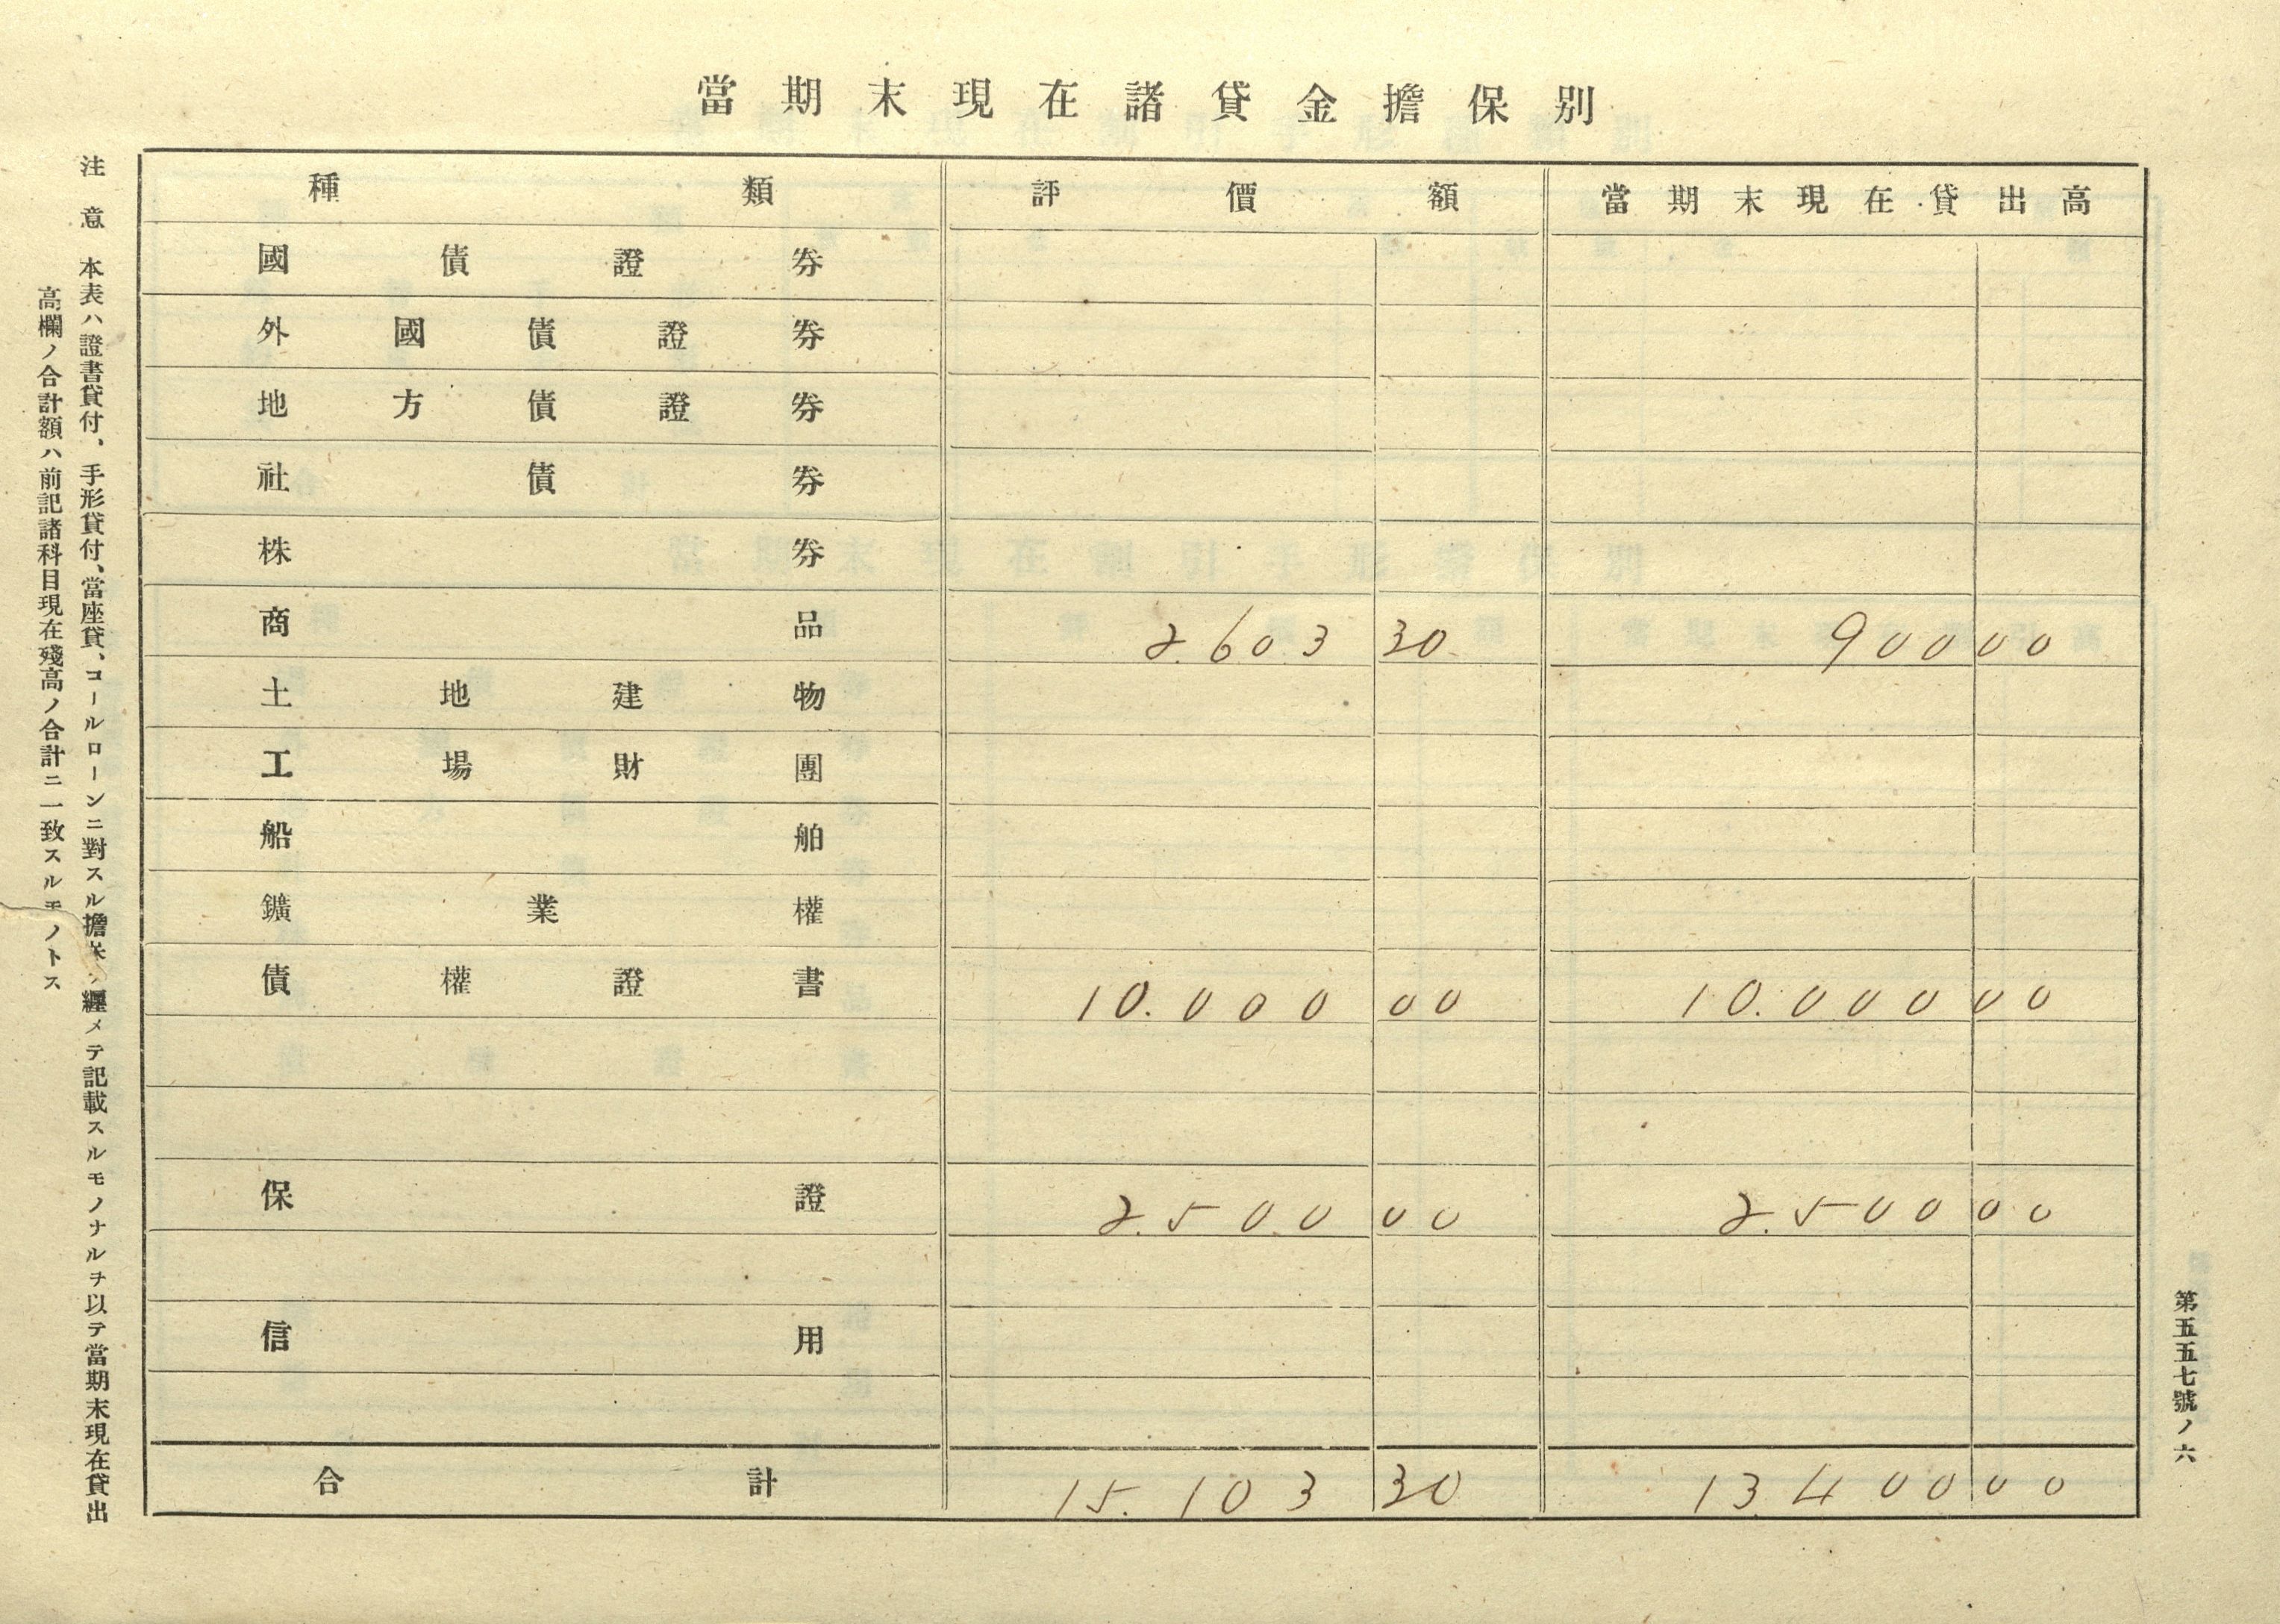 當期末現在諸貸金擔保別
種類 評價額 當期末現在貸出高
國債證券
外國債證券
地方債證券
社債券
株券
商品 2.603 30 900 00
土地建物
工場財團
船舶
鑛業權
債權證書 10.000 00 10.000 00
保證 2.500 00 2.500 00
信用
合計 15.103 30 13400 00
注意 本表ハ證書貸付、手形貸付、當座貸、コールローンニ對スル擔保ヲ纒メテ記載スルモノナルヲ以テ當期末現在貸出
高欄ノ合計額ハ前記諸科目現在殘高ノ合計ニ一致スルモノトス
第五五七號ノ六